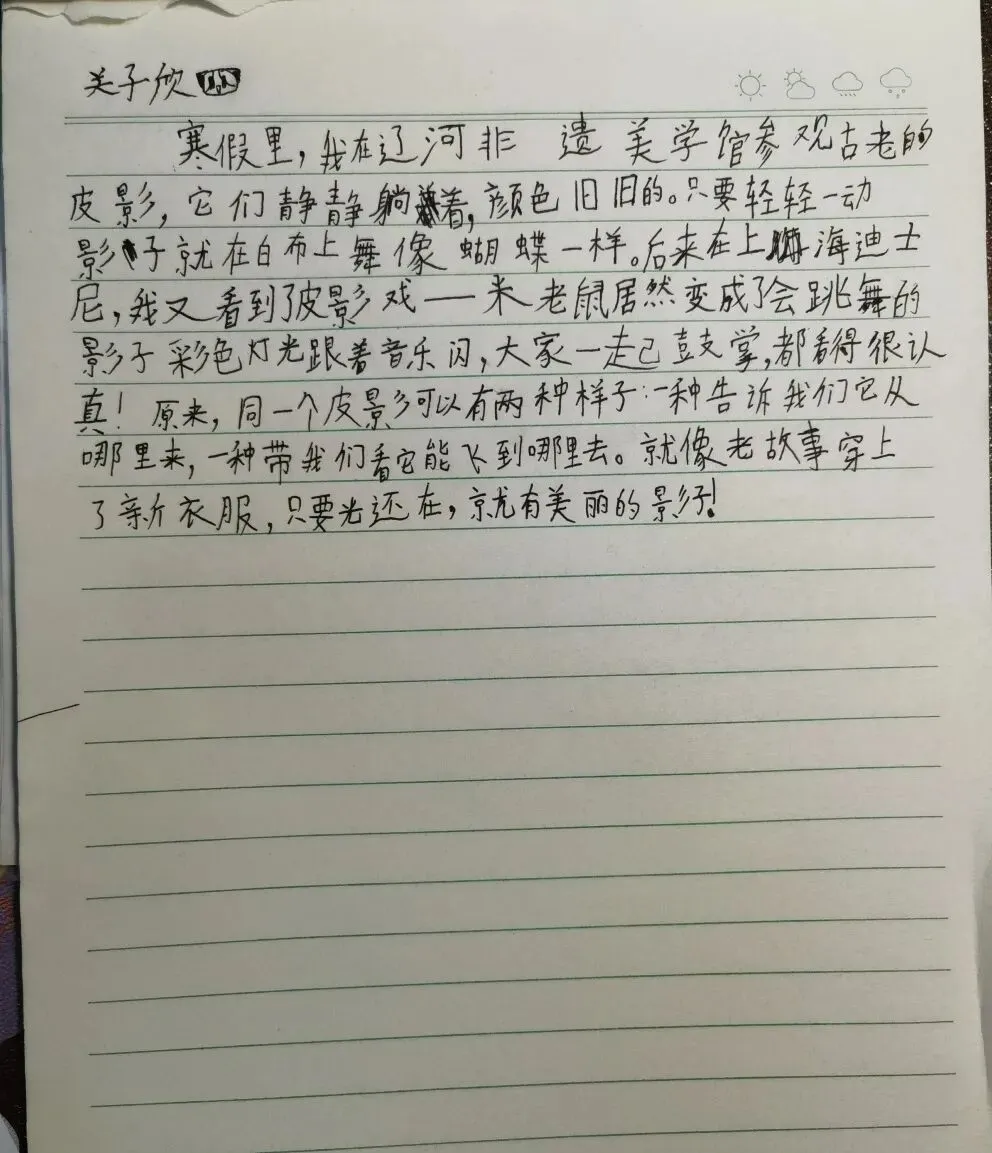 关子欣
寒假里，我在辽河非 遗 美学馆参观古老的
皮影，它们静静躺着，颜色旧旧的。只要轻轻一动
影子就在白布上舞像蝴蝶一样。后来在上海迪士
尼，我又看到了皮影戏——米老鼠居然变成了会跳舞的
影子彩色灯光跟着音乐闪，大家一起鼓掌，都看得很认
真！原来，同一个皮影可以有两种样子：一种告诉我们它从
哪里来，一种带我们看它能飞到哪里去。就像老故事穿上
了新衣服，只要光还在，就有美丽的影子！